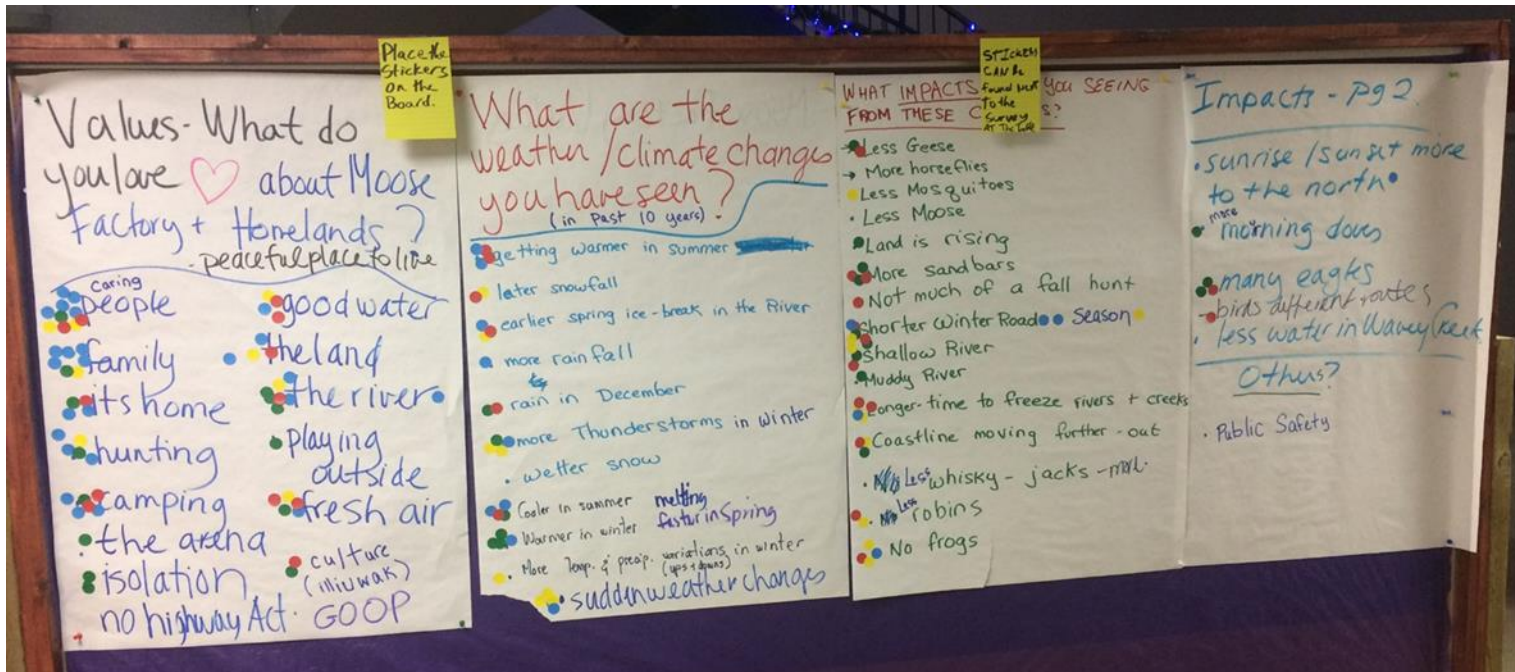 Place the
Stickers
on the
Board.
Values - What do
you love ♡ about Moose
Factory + Homelands?
- peaceful place to live
caring
people
family
its home
hunting
camping
the arena
isolation
no highway Act.
good water
the land
the river
playing
outside
fresh air
culture
(illiuwak)
GOOP
What are the
weather/climate changes
you have seen?
(in past 10 years).
getting warmer in summer
later snowfall
earlier spring ice-break in the River
more rainfall
rain in December
more Thunderstorms in winter
. wetter snow
Cooler in summer
melting
faster in Spring
Warmer in winter
. More Temp. & precip. variations in winter
(ups + downs)
sudden weather changes
STICKERS
CAN be
found next
to the
Survey
AT The Table
WHAT IMPACTS YOU SEEING
FROM THESE C S?
Less Geese
→ More horseflies
Less Mosquitoes
· Less Moose
Land is rising
More sandbars
Not much of a fall hunt
Shorter Winter Road Season
Shallow River
Muddy River
Longer-time to freeze rivers + creeks
Coastline moving further-out
· Less whisky-jacks -
. Less robins
No frogs
Impacts - pg 2
. sunrise/sunset more
to the north
more
morning doves
many eagles
- birds different routes
. less water in Wavey Creek
Others?
. Public Safety